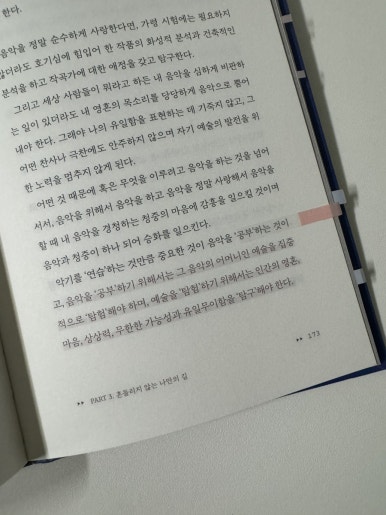 한다.
음악을 정말 순수하게 사랑한다면, 가령 시험에는 필요하지
않더라도 호기심에 힘입어 한 작품의 화성적 분석과 건축적인
분석을 하고 작곡가에 대한 애정을 갖고 탐구한다.
그리고 세상 사람들이 뭐라고 하든 내 음악을 심하게 비판하
는 일이 있더라도 내 영혼의 목소리를 당당하게 음악으로 뿜어
내야 한다. 그래야 나의 유일함을 표현하는 데 기죽지 않고, 그
어떤 찬사나 극찬에도 안주하지 않으며 자기 예술의 발전을 위
한 노력을 멈추지 않게 된다.
어떤 것 때문에 혹은 무엇을 이루려고 음악을 하는 것을 넘어
서서, 음악을 위해서 음악을 하고 음악을 정말 사랑해서 음악을
할 때 내 음악을 경청하는 청중의 마음에 감흥을 일으킬 것이며
음악과 청중이 하나 되어 승화를 일으킨다.
악기를 '연습'하는 것만큼 중요한 것이 음악을 '공부'하는 것이
고, 음악을 '공부'하기 위해서는 그 음악의 어머니인 예술을 집중
적으로 '탐험'해야 하며, 예술을 '탐험'하기 위해서는 인간의 영혼,
마음, 상상력, 무한한 가능성과 유일무이함을 '탐구'해야 한다.
PART 3. 흔들리지 않는 나만의 길
173